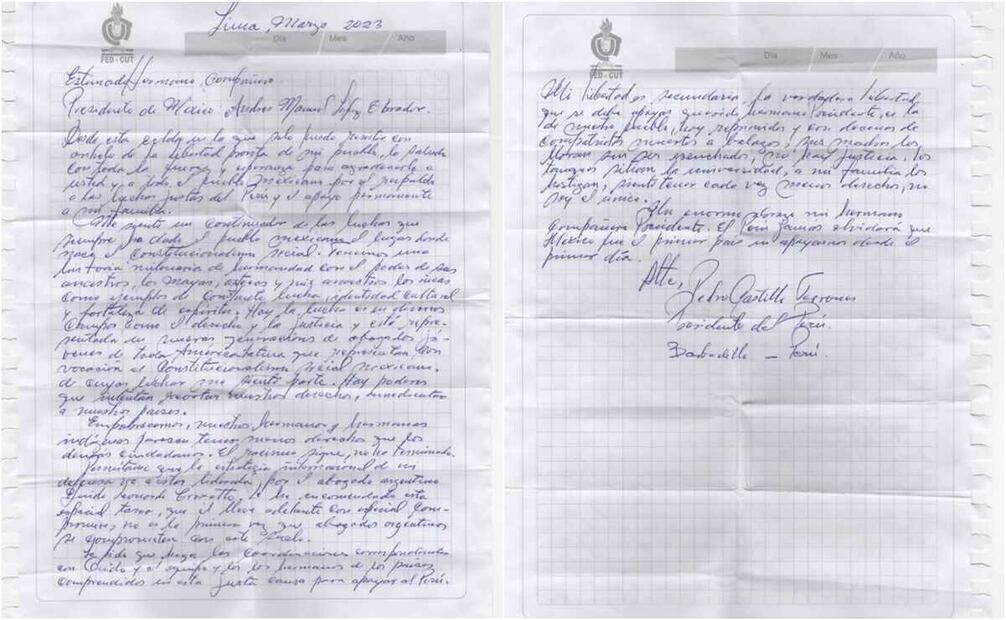 Lima, Marzo 2023
Día Mes Año
FED-CUT
Estimado Hermano, Compañero
Presidente de México: Andrés Manuel López Obrador.
Desde esta celda en la que solo puedo resistir con
anhelo de la libertad pronta de mi pueblo, lo saludo
con toda la fuerza y esperanza para agradecerle a
usted y a todo el pueblo mexicano por el respaldo
a las luchas justas del Perú y el apoyo permanente
a mi familia.
Me siento un continuador de las luchas que
siempre ha dado el pueblo mexicano, el lugar donde
nació el constitucionalismo social. Tenemos una
historia milenaria de hermandad con el poder de sus
ancestros, los mayas, aztecas y mis ancestros los incas
como ejemplos de constante lucha, identidad cultural
y fortaleza de espíritu. Hoy la lucha es en diversos
campos como el derecho y la justicia y está repre-
sentada en nuevas generaciones de abogados jó-
venes de toda América latina que representan con
vocación el Constitucionalismo social mexicano,
de cuyas luchas me siento parte. Hay poderes
que intentan recortar nuestros derechos,
a nuestros países.
nuestros hermanos y hermanas
indígenas parecen tener menos derechos que los
demás ciudadanos. El racismo sigue, no ha terminado.
Permítame que la estrategia internacional de mi
defensa va a estar liderada, por el abogado argentino
Guido Leonardo Croxatto, le he encomendado esta
especial tarea, que él lleve adelante con especial com-
promiso, no es la primera vez que abogados argentinos
se comprometen con este suelo.
Le pido que haga las coordinaciones correspondientes
con Guido y el equipo y los hermanos de los países
comprendidos en esta justa causa para apoyar al Perú.
FED-CUT
Día Mes Año
Mi libertad es secundaria. La verdadera libertad
que se debe apoyar querido hermano Presidente, es la
de nuestro pueblo, hoy reprimido y con decenas de
compatriotas muertos a balazos, sus madres los
lloran sin ser escuchadas, no hay justicia, los
tanques sitian la universidad, a mi familia los
hostigan, siento tener cada vez menos derechos, no
soy el único.
Un enorme abrazo mi hermano
Compañero Presidente. El Perú jamás olvidará que
México fue el primer país en apoyarnos desde el
primer día.
Atte,
Pedro Castillo Terrones
Presidente del Perú.
Barbadillo – Perú.